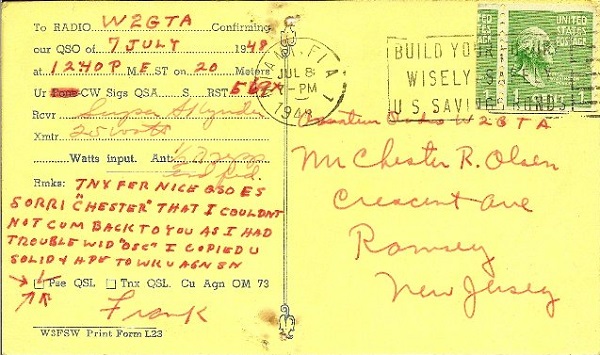 To RADIO W2GTA Confirming
our QSO of 7 JULY 1948
at 1240P M. EST on 20 Meters
Ur Fone CW Sigs QSA S RST 569X
Rcvr Super Skyrider
Xmtr 25 Watts
Watts input. Ant: 1/2 wave
end fed.
Rmks: TNX FER NICE QSO ES
SORRI "CHESTER" THAT I COULDNT
NOT CUM BACK TO YOU AS I HAD
TROUBLE WID "OSC" I COPIED U
SOLID & HPE TO WRK U AGN SN
Pse QSL Tnx QSL. Cu Agn OM 73
Frank
W3FSW Print Form L23
MIAMI, FLA.
JUL 8
PM
1948
BUILD YOUR FUTURE
WISELY SAFELY
U.S. SAVINGS BONDS
UNITED
STATES
POSTAGE
1
Amateur Radio W2GTA
Mr Chester R. Olsen
Crescent Ave
Ramsey
New Jersey